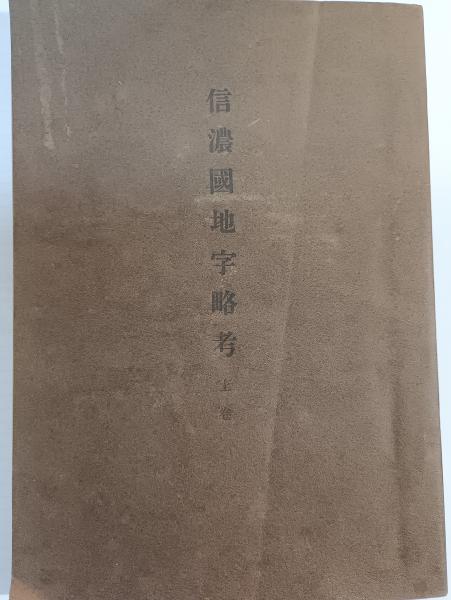 信濃國地字略考 上卷